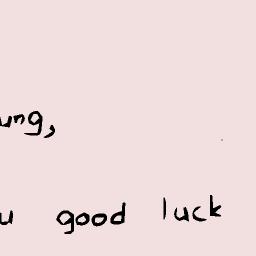 ung,
u good luck